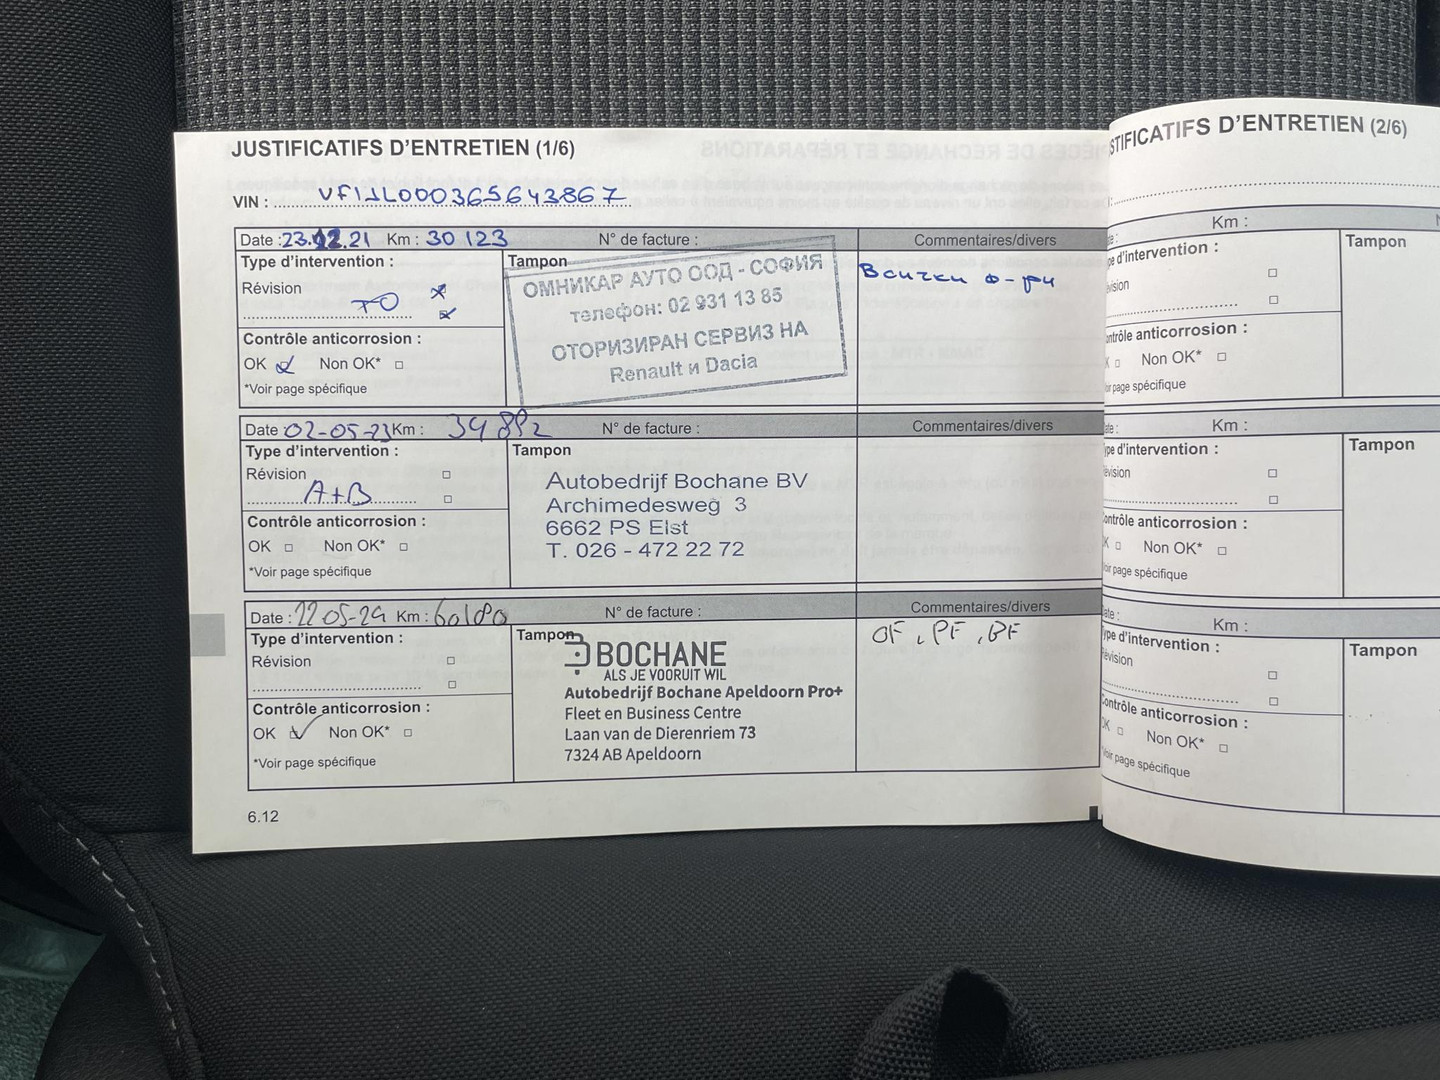 JUSTIFICATIFS D'ENTRETIEN (1/6)
VIN : VF1JL000365643867
Date : 23.12.21 Km : 30 123 N° de facture : Commentaires/divers
Type d'intervention :
Révision
TO
Contrôle anticorrosion :
OK Non OK*
*Voir page spécifique
Tampon
ОМНИКАР АУТО ООД - СОФИЯ
телефон: 02 931 13 85
ОТОРИЗИРАН СЕРВИЗ НА
Renault и Dacia
Всички ф-ри
Date : 02-05-23 Km : 34882 N° de facture : Commentaires/divers
Type d'intervention :
Révision
A+B
Contrôle anticorrosion :
OK Non OK*
*Voir page spécifique
Tampon
Autobedrijf Bochane BV
Archimedesweg 3
6662 PS Elst
T. 026 - 472 22 72
Date : 22 05-24 Km : N° de facture : Commentaires/divers
Type d'intervention :
Révision
Contrôle anticorrosion :
OK Non OK*
*Voir page spécifique
Tampon
BOCHANE
ALS JE VOORUIT WIL
Autobedrijf Bochane Apeldoorn Pro+
Fleet en Business Centre
Laan van de Dierenriem 73
7324 AB Apeldoorn
OF, PF, BF
6.12
STIFICATIFS D'ENTRETIEN (2/6)
Km :
pe d'intervention :
vision
ontrôle anticorrosion :
Non OK*
oir page spécifique
Tampon
Km :
ype d'intervention :
évision
ontrôle anticorrosion :
Non OK*
oir page spécifique
Tampon
Km :
ype d'intervention :
évision
ontrôle anticorrosion :
OK Non OK*
*Voir page spécifique
Tampon